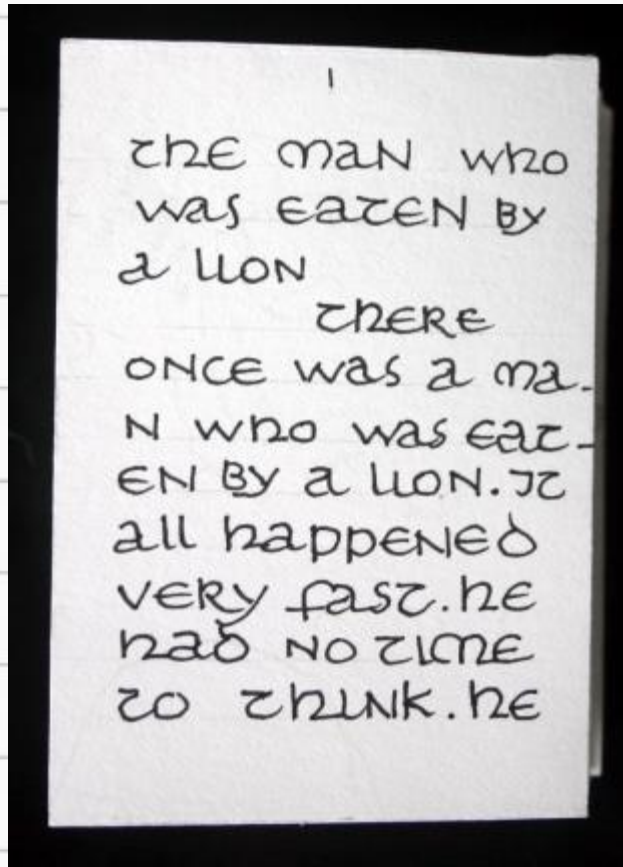 1
THE MAN WHO
WAS EATEN BY
A LION
THERE
ONCE WAS A MA-
N WHO WAS EAT-
EN BY A LION. IT
ALL HAPPENED
VERY FAST. HE
HAD NO TIME
TO THINK. HE